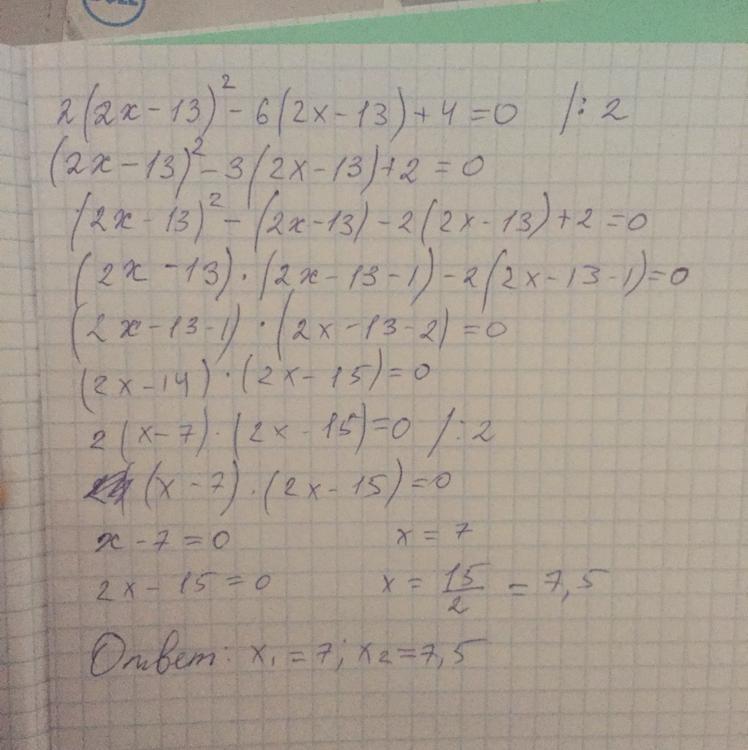 DELL
2(2x-13)² - 6(2x-13)+4=0 /:2
(2x-13)² - 3(2x-13)+2=0
(2x-13)² - (2x-13) - 2(2x-13)+2=0
(2x-13)·(2x-13-1)-2(2x-13-1)=0
(2x-13-1)·(2x-13-2)=0
(2x-14)·(2x-15)=0
2(x-7)·(2x-15)=0 /:2
(x-7)·(2x-15)=0
x-7=0 x=7
2x-15=0 x=15/2=7,5
Ответ: x₁=7; x₂=7,5